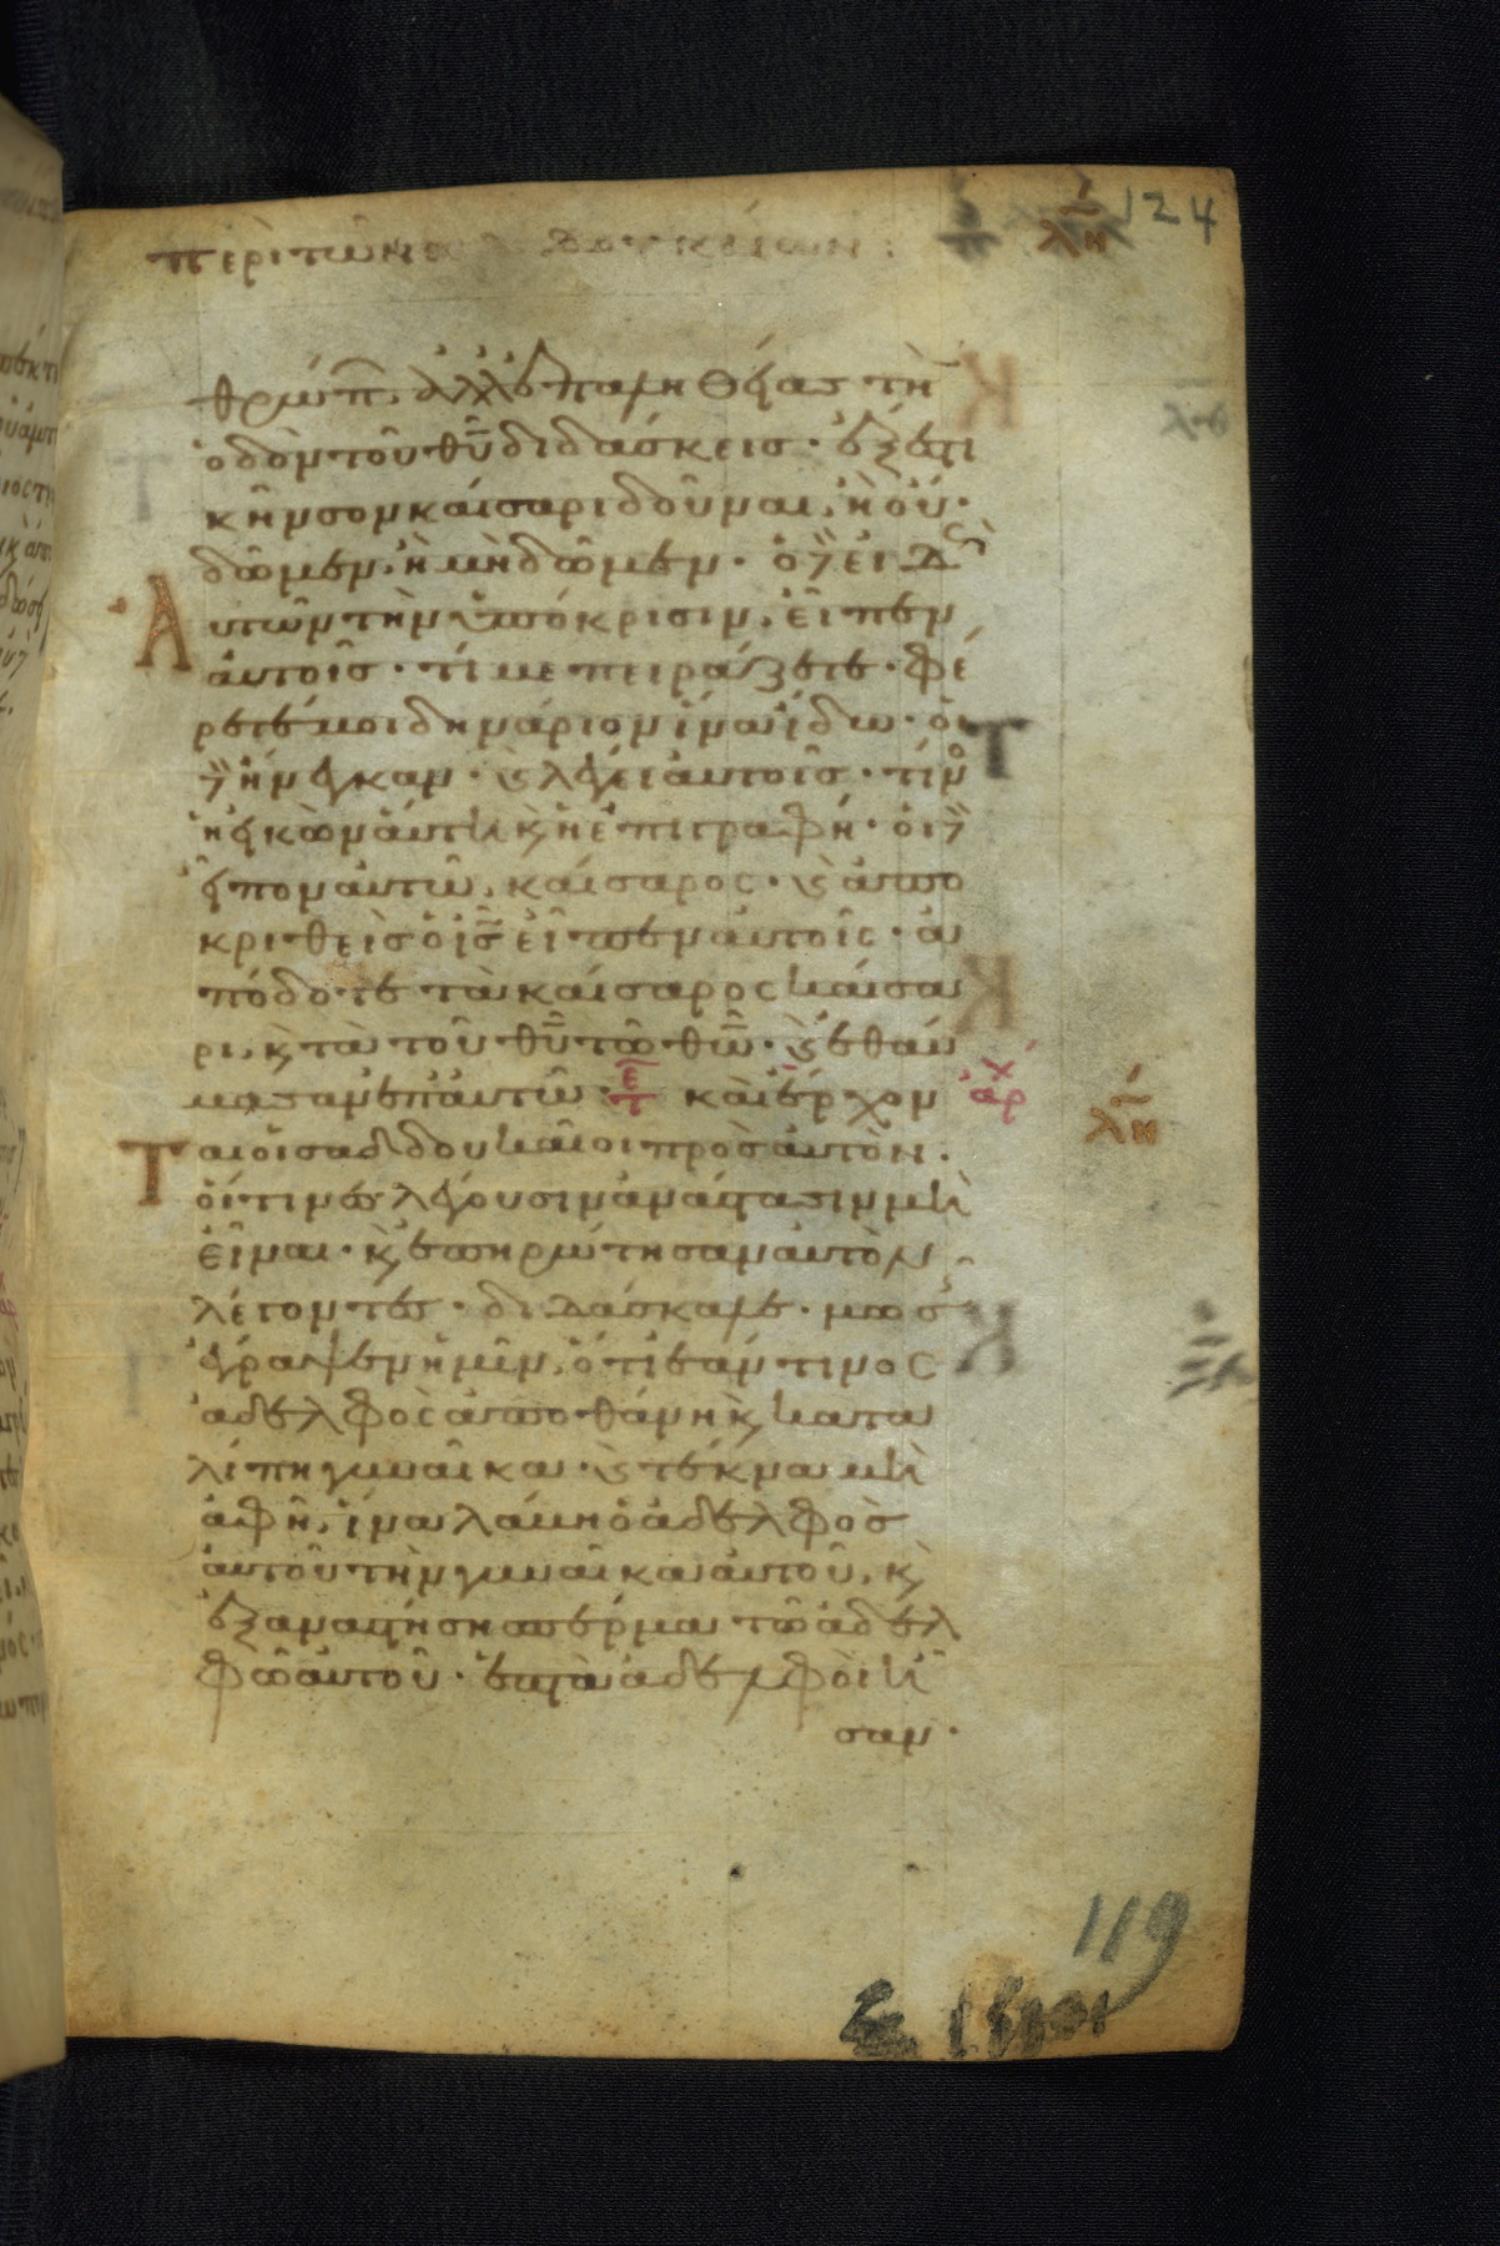 περὶ τῶν σαδδουκαίων :
λη
124
θρώπ, ἀλλ' ἐπ' ἀληθείας τὴ
ὁδὸν τοῦ θῦ διδάσκεις · ἔξεστι
κῆνσον καίσαρι δοῦναι, ἢ οὔ ·
δῶμεν, ἢ μὴ δῶμεν · ὁ δὲ εἰδὼς
Αὐτῶν τὴν ὑπόκρισιν, εἶπεν
αὐτοῖς · τί με πειράζετε · φέ
ρετέ μοι δηνάριον ἵνα ἴδω · οἱ
δὲ ἤνεγκαν · καὶ λέγει αὐτοῖς · τίνο
ἡ εἰκὼν αὕτη κ ἡ ἐπιγραφή · οἱ δὲ
εἶπον αὐτῶ, καίσαρος · καὶ ἀπο
κριθεὶς ὁ ις εἶπεν αὐτοῖς · ἀ
πόδοτε τὰ καίσαρος καίσα
ρι, κ τὰ τοῦ θῦ τῶ θῶ · καὶ ἐθαύ
μασαν ἐπ' αὐτῶ · τε καὶ ἔρχον ἀρχ
λη
Ται οἱ σαδδουκαῖοι πρὸς αὐτὸν ·
οἵτινες λέγουσιν ἀνάστασιν μὴ
εἶναι · κ ἐπηρώτησαν αὐτὸν
λέγοντες · διδάσκαλε · μωσῆς
ἔγραψεν ἡμῖν, ὅτι ἐάν τινος
ἀδελφὸς ἀποθάνη κ κατα
λίπη γυναῖκα · καὶ τέκνα μὴ
ἀφῆ, ἵνα λάβη ὁ ἀδελφὸς
αὐτοῦ τὴν γυναῖκα αὐτοῦ, κ
ἐξαναστήση σπέρμα τῶ ἀδελ
φῶ αὐτοῦ · ἑπτὰ ἀδελφοὶ ἦ
σαν ·
119